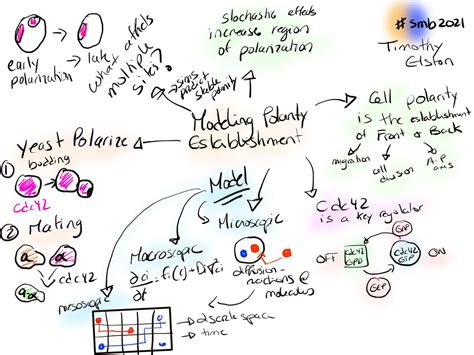 early
polarization
late
what affects
multiple
sites?
sims
predict
stable
polarity
Stochastic effects
increase region
of polarization
#smb2021
Timothy
Elston
Modeling Polarity
Establishment
Cell polarity
is the establishment
of Front & Back
migration
cell
division
A-P
axis
Yeast Polarize
1
budding
cdc42
2 Mating
a
α
cdc42
aα
Model
Macroscopic
∂ci/∂t = fi(c) + D∇²ci
Microscopic
diffusion
reactions @
molecules
mesoscopic
discrete space
time
Cdc42
is a key regulator
OFF
cdc42
GDP
GAP
cdc42
GTP
ON
GEF